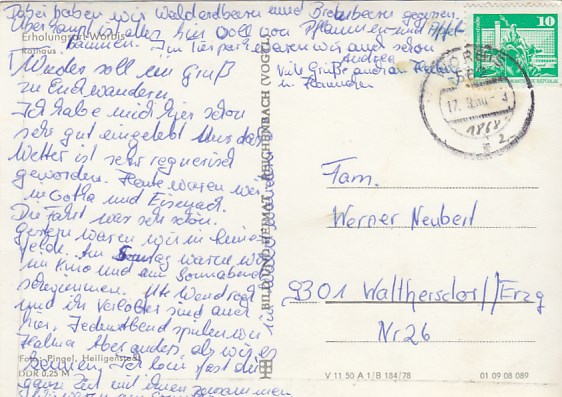 Dabei haben wir Walderdbeeren und Blaubeeren gegessen.
Überhaupt ist alles hier voll von Pflaumen und Apfel-
bäumen. Im Tierpark waren wir auch schon
Erholungsort Worbis
Rathaus
Wieder soll ein Gruß
zu Euch wandern.
Ich habe mich hier schon
sehr gut eingelebt. Nur das
Wetter ist sehr regnerisch
geworden. Heute waren wir
in Gotha und Eisenach.
Die Fahrt war sehr schön.
Gestern waren wir in
felde. Am Sonntag waren wir
im Kino und am Sonnabend
schwimmen. Ute Wendrock
und ihr Verlobter sind auch
hier. Jeden Abend spielen wir
Halma Aber anders, als wir es
kennen. Ich bin fast die
ganze Zeit mit ihnen zusammen
Foto: Pingel, Heiligenstadt
DDR 0,25 M
BILD UND HEIMAT REICHENBACH (VOGTL)
Viele Grüße
Andrea
10
17. 8.80
1868
Fam.
Werner Neubert
9301 Walthersdorf/Erzg
Nr 26
V 11 50 A 1/B 184/78
01 09 08 089